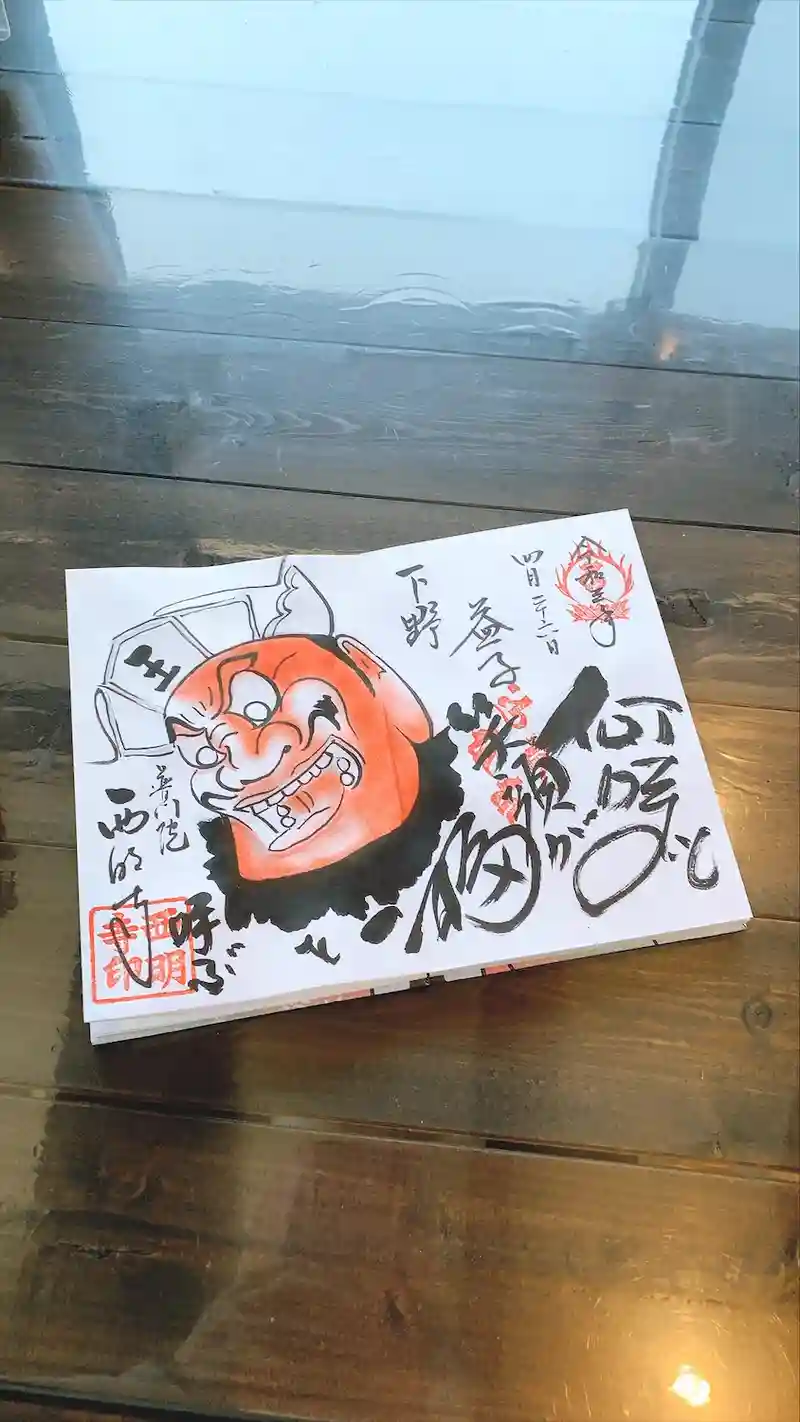 令和三年
四月二十二日
何時も
益子
笑顔が
下野
福を
呼ぶ
王
普門院
西明寺
西明寺印